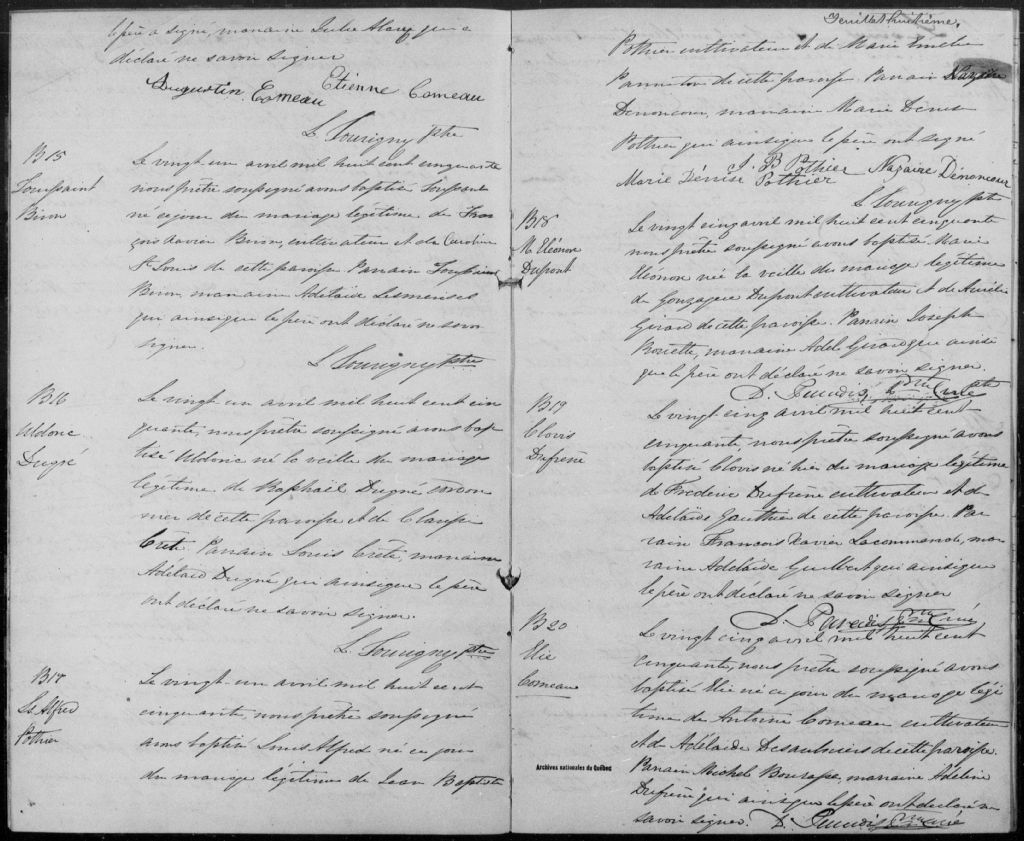 le père a signé, marraine Julie Alary qui a
déclaré ne savoir signer
Augustin Comeau Etienne Comeau
L. Tourigny ptre
B15
Toussaint
Biron
Le vingt un avril mil huit cent cinquante
nous prêtre soussigné avons baptisé Toussaint
né ce jour du mariage légitime de Fran
çois Xavier Biron, cultivateur et de Caroline
St Louis de cette paroisse Parrain Toussaint
Biron, marraine Adelaide Lesmerises
qui ainsi que le père ont déclaré ne savoir
signer.
L. Tourigny ptre
B16
Uldoric
Dugré
Le vingt un avril mil huit cent cin
quante, nous prêtre soussigné avons bap
tisé Uldoric né la veille du mariage
légitime de Raphaël Dugré cordon
nier de cette paroisse et de
Crète Parrain Louis Crète, marraine
Adelaid Dugré qui ainsi que le père
ont déclaré ne savoir signer.
L. Tourigny ptre
B17
Ls Alfred
Pothier
Le vingt-un avril mil huit cent
cinquante, nous prêtre soussigné
avons baptisé Louis Alfred né ce jour
du mariage légitime de Jean Baptiste
Feuillet huitième.
Pothier cultivateur et de Marie Emelie
Panneton de cette paroisse. Parrain Nazaire
Denoncour, marraine Marie Denise
Pothier qui ainsi que le père ont signé
J. B Pothier Nazaire Dénoncour
Marie Dénise Pothier
L. Tourigny ptre
B18
M. Eléonore
Dupont
Le vingt cinq avril mil huit cent cinquante
nous prêtre soussigné avons baptisé Marie
Eléonore née la veille du mariage légitime
de Gonzague Dupont cultivateur et de Aurélie
Girard de cette paroisse. Parrain Joseph
marraine Adel Girard qui ainsi
que le père ont déclaré ne savoir signer.
D. Paradis
B19
Clovis
Dufrène
Le vingt cinq avril mil huit cent
cinquante, nous prêtre soussigné avons
baptisé Clovis né hier du mariage légitime
de Frederic Dufrène cultivateur et de
Adelaïde Gauthier de cette paroisse. Par
rain Francois Xavier Lacommande, mar
raine Adelaïde Guilbert qui ainsi que
le père ont déclaré ne savoir signer
D. Paradis
B20
Elie
Comeau
Le vingt cinq avril mil huit cent
cinquante, nous prêtre soussigné avons
baptisé Elie né ce jour du mariage légi
time de Antoine Comeau cultivateur
et de Adélaide Desaulniers de cette paroisse.
Parrain Michel Bourassa, marraine Adeline
Dufrène qui ainsi que le père ont déclaré ne
savoir signer. D. Paradis
Archives nationales du Québec